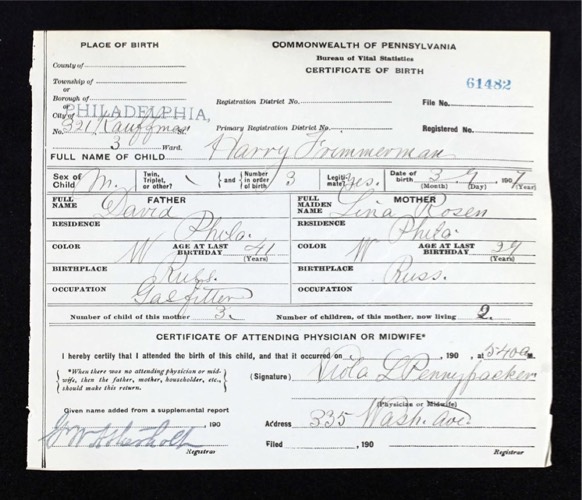 PLACE OF BIRTH
COMMONWEALTH OF PENNSYLVANIA
Bureau of Vital Statistics
CERTIFICATE OF BIRTH
County of
Township of
or
Borough of
or
City of PHILADELPHIA,
No. 321 Kauffman St.
3 Ward.
61482
Registration District No. File No.
Primary Registration District No. Registered No.
FULL NAME OF CHILD Harry Frimmerman
Sex of Child M. Twin, Triplet, or other? and Number in order of birth 3 Legiti- mate? Yes. Date of birth 3 9 1907
(Month) (Day) (Year)
FATHER
FULL NAME David
RESIDENCE Phila.
COLOR W AGE AT LAST BIRTHDAY 41 (Years)
BIRTHPLACE Russ.
OCCUPATION Gasfitter
MOTHER
FULL MAIDEN NAME Lina Rosen
RESIDENCE Phila.
COLOR W AGE AT LAST BIRTHDAY (Years)
BIRTHPLACE Russ.
OCCUPATION
Number of child of this mother 3. Number of children, of this mother, now living 2.
CERTIFICATE OF ATTENDING PHYSICIAN OR MIDWIFE*
I hereby certify that I attended the birth of this child, and that it occurred on , 190 , at 540a M.
*When there was no attending physician or mid-
wife, then the father, mother, householder, etc.,
should make this return.
(Signature) Viola L Pennypacker
(Physician or Midwife)
Given name added from a supplemental report
, 190
Address 335 Wash. Ave.
Registrar
Filed , 190
Registrar